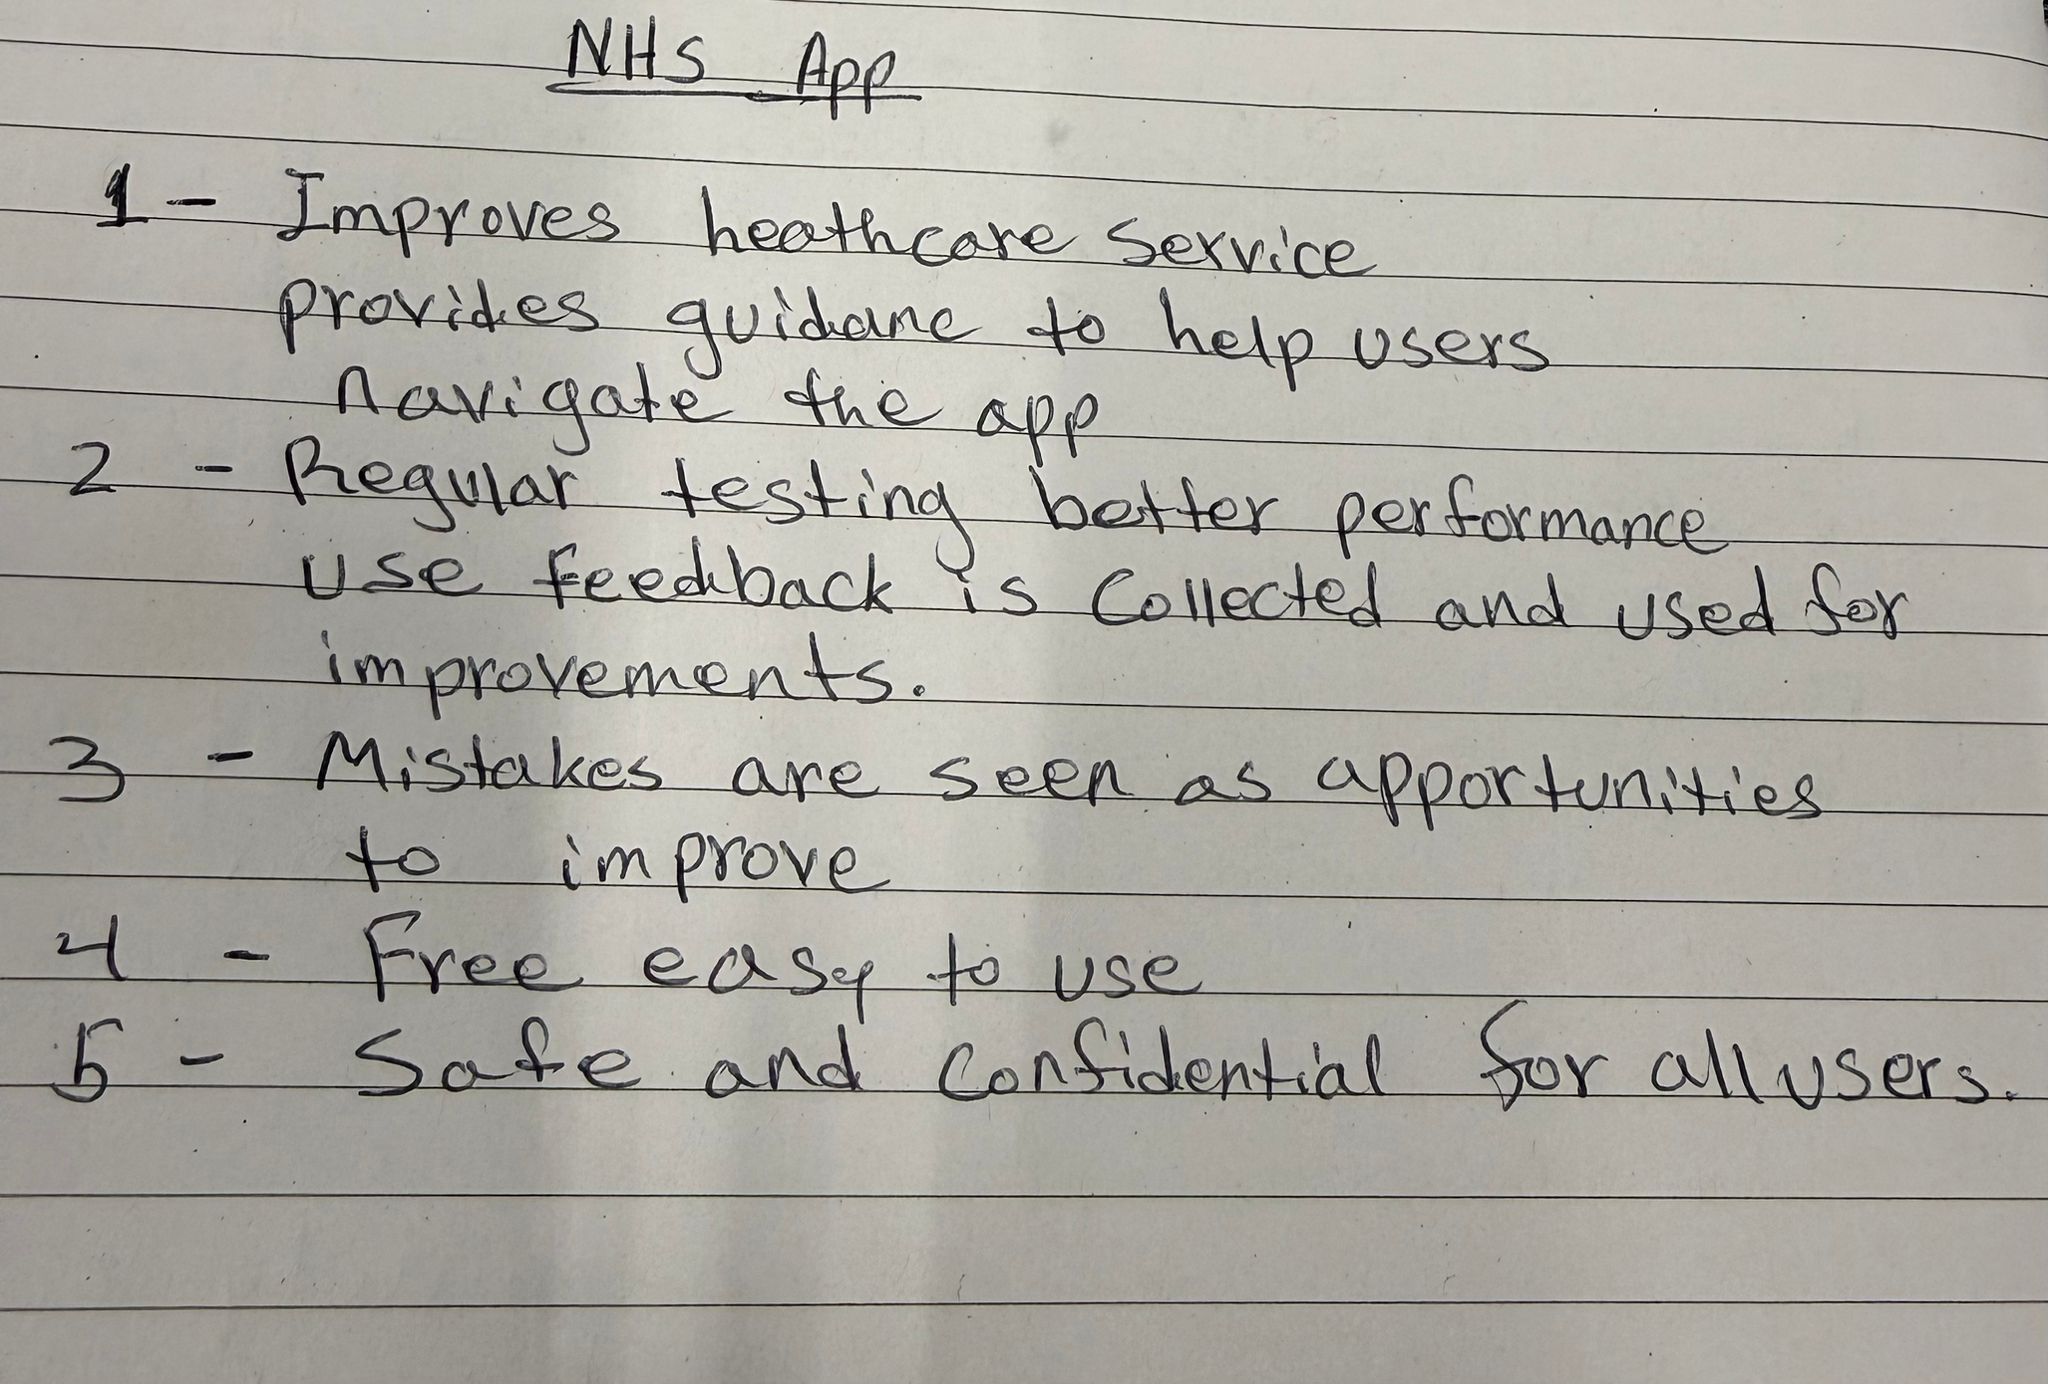 NHS App
1 - Improves heathcare service
provides guidanc to help users
navigate the app
2 - Regular testing better performance
use feedback is collected and used for
improvements.
3 - Mistakes are seen as apportunities
to improve
4 - Free easy to use
5 - Safe and confidential for all users.